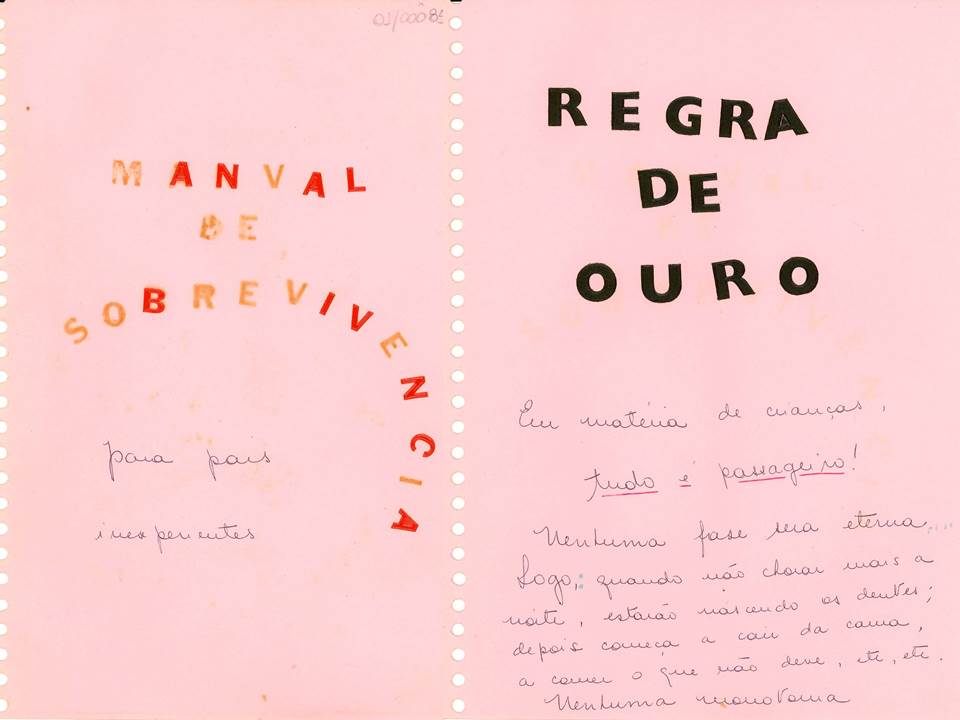 MANVAL
DE
SOBREVIVENCIA
para pais
inexperientes
REGRA
DE
OURO
Em matéria de crianças,
tudo é passageiro!
Nenhuma fase sera eterna....
Logo, quando não chorar mais a
noite, estarão nascendo os dentes;
depois começa a cair da cama,
a comer o que não deve, etc, etc.
Nenhuma monotomia